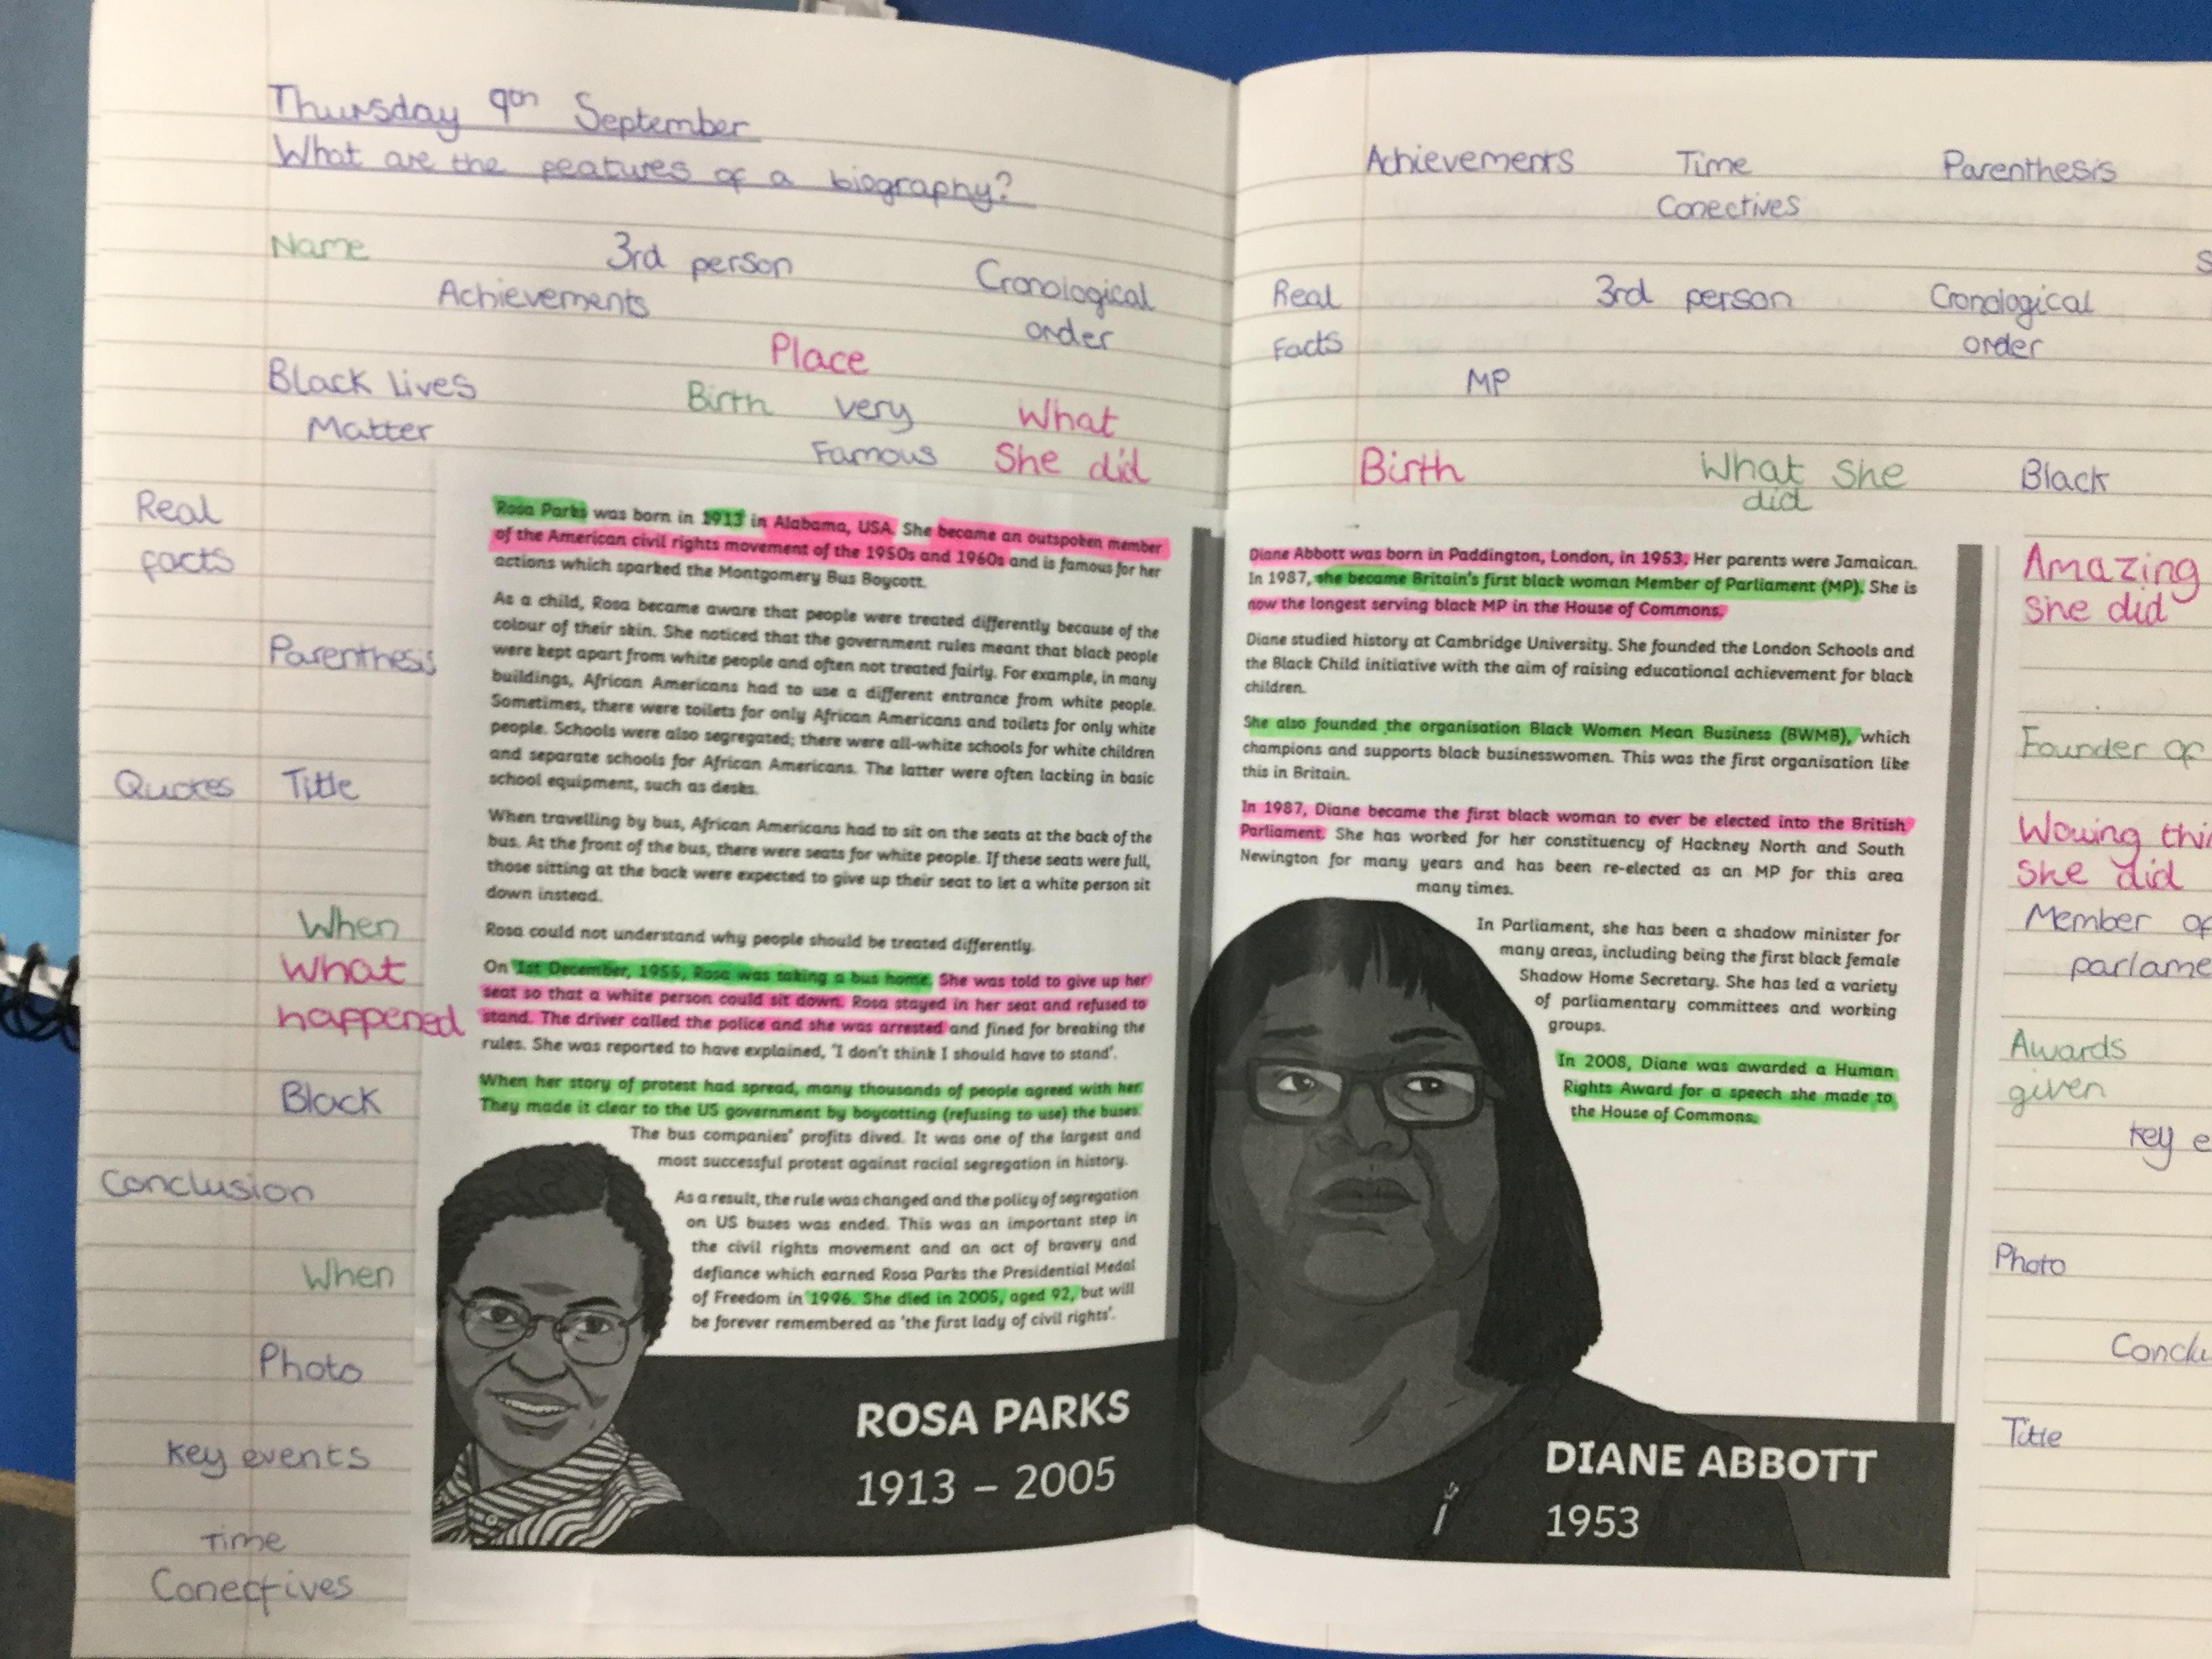 Thursday 9th September
What are the features of a biography?
Name
3rd person
Cronological
order
Achievements
Place
Black lives
Matter
Birth
very
Famous
What
She did
Real
facts
Parenthesis
Quotes
Title
When
What
happened
Black
Conclusion
When
Photo
Key events
Time
Conectives
Rosa Parks was born in 1913 in Alabama, USA. She became an outspoken member
of the American civil rights movement of the 1950s and 1960s and is famous for her
actions which sparked the Montgomery Bus Boycott.
As a child, Rosa became aware that people were treated differently because of the
colour of their skin. She noticed that the government rules meant that black people
were kept apart from white people and often not treated fairly. For example, in many
buildings, African Americans had to use a different entrance from white people.
Sometimes, there were toilets for only African Americans and toilets for only white
people. Schools were also segregated; there were all-white schools for white children
and separate schools for African Americans. The latter were often lacking in basic
school equipment, such as desks.
When travelling by bus, African Americans had to sit on the seats at the back of the
bus. At the front of the bus, there were seats for white people. If these seats were full,
those sitting at the back were expected to give up their seat to let a white person sit
down instead.
Rosa could not understand why people should be treated differently.
On 1st December, 1955, Rosa was taking a bus home. She was told to give up her
seat so that a white person could sit down. Rosa stayed in her seat and refused to
stand. The driver called the police and she was arrested and fined for breaking the
rules. She was reported to have explained, 'I don't think I should have to stand'.
When her story of protest had spread, many thousands of people agreed with her.
They made it clear to the US government by boycotting (refusing to use) the buses.
The bus companies' profits dived. It was one of the largest and
most successful protest against racial segregation in history.
As a result, the rule was changed and the policy of segregation
on US buses was ended. This was an important step in
the civil rights movement and an act of bravery and
defiance which earned Rosa Parks the Presidential Medal
of Freedom in 1996. She died in 2005, aged 92, but will
be forever remembered as 'the first lady of civil rights'.
ROSA PARKS
1913 – 2005
Achievements
Time
Conectives
Parenthesis
Real
Facts
3rd person
Cronological
order
MP
Birth
What She
did
Black
Diane Abbott was born in Paddington, London, in 1953. Her parents were Jamaican.
In 1987, she became Britain's first black woman Member of Parliament (MP). She is
now the longest serving black MP in the House of Commons.
Diane studied history at Cambridge University. She founded the London Schools and
the Black Child initiative with the aim of raising educational achievement for black
children.
She also founded the organisation Black Women Mean Business (BWMB), which
champions and supports black businesswomen. This was the first organisation like
this in Britain.
In 1987, Diane became the first black woman to ever be elected into the British
Parliament. She has worked for her constituency of Hackney North and South
Newington for many years and has been re-elected as an MP for this area
many times.
In Parliament, she has been a shadow minister for
many areas, including being the first black female
Shadow Home Secretary. She has led a variety
of parliamentary committees and working
groups.
In 2008, Diane was awarded a Human
Rights Award for a speech she made to
the House of Commons.
DIANE ABBOTT
1953
Amazing
She did
Founder of
Wowing thi
She did
Member of
parlame
Awards
given
key e
Photo
Conclu
Title